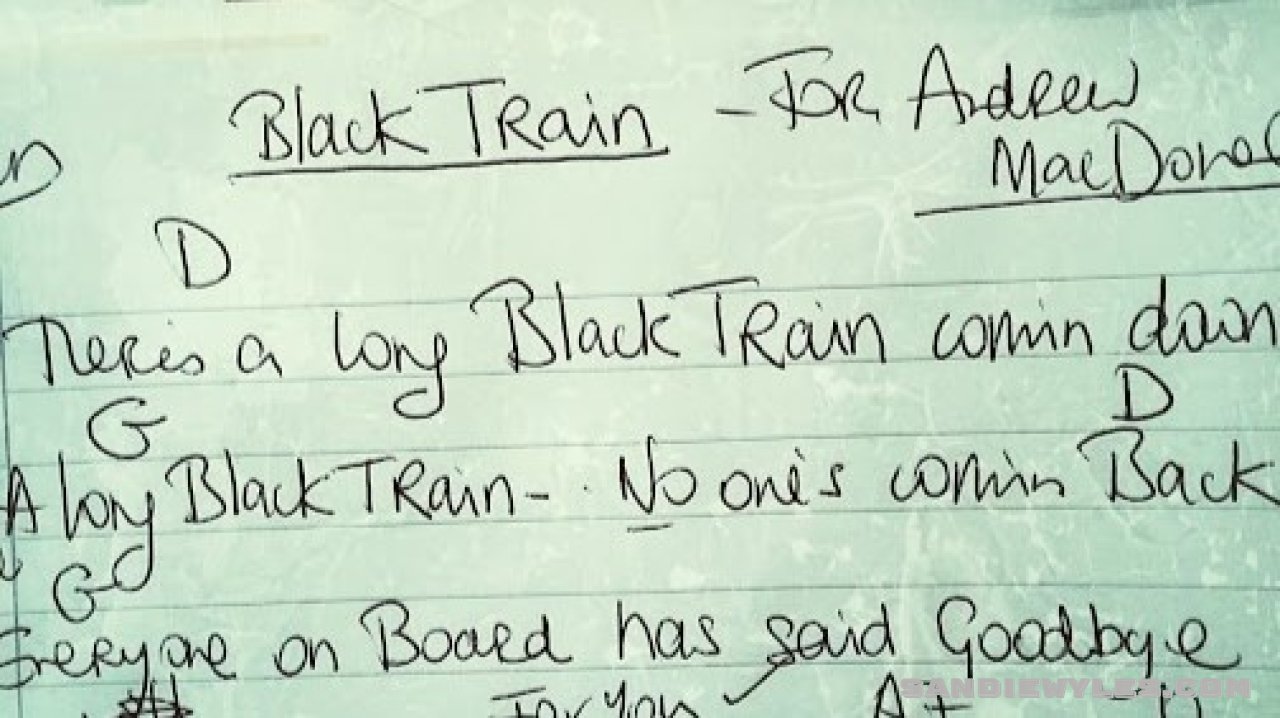 Black Train - For Andrew
MacDonal
D
There's a long Black Train comin down
G D
A long Black Train - No one's comin Back
G
Everyone on Board has said Goodbye
For you A+
SANDIEWYLES.COM